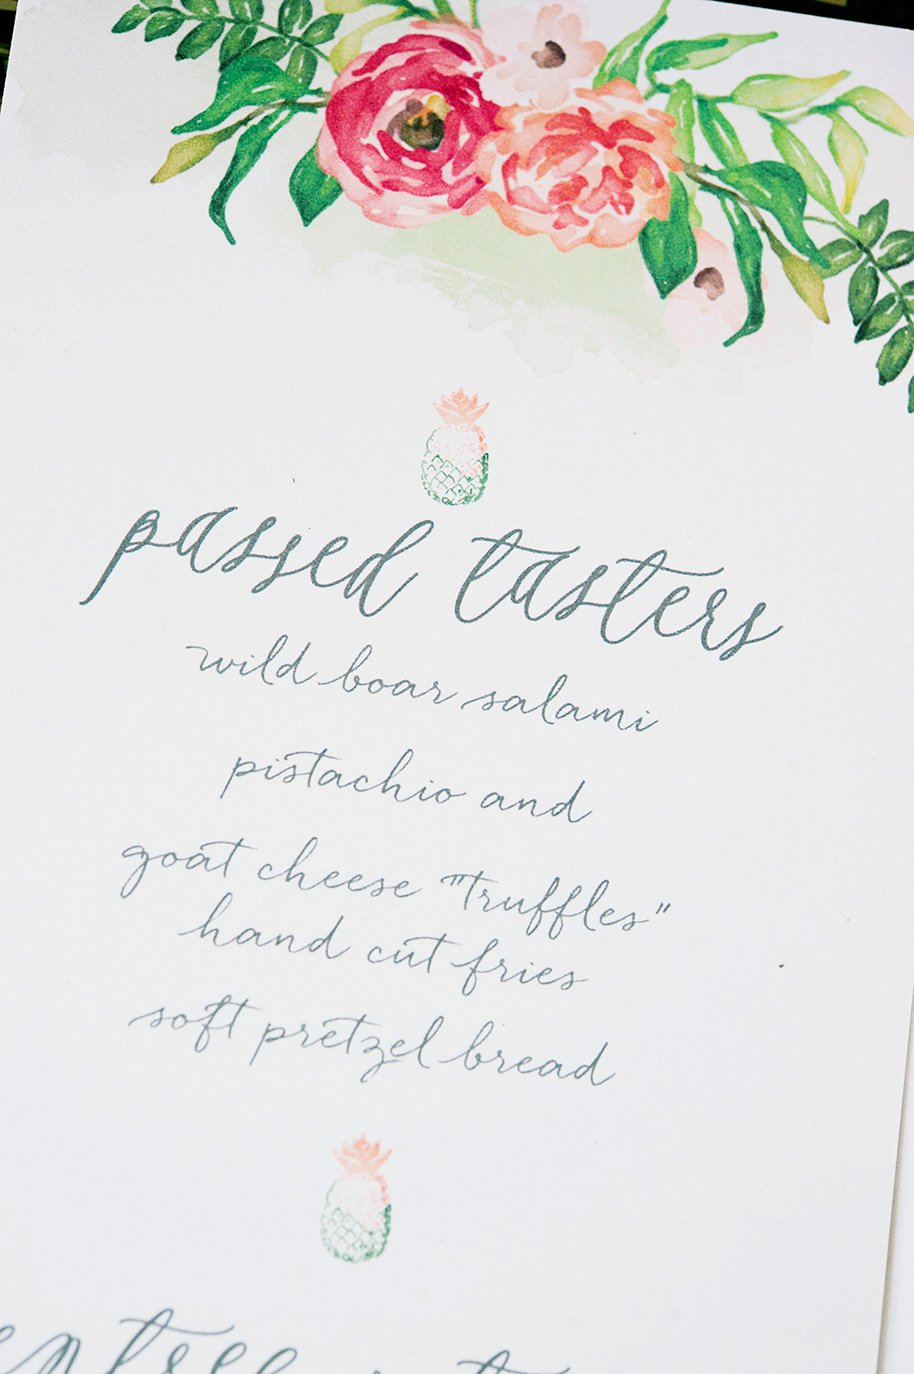 passed tasters
wild boar salami
pistachio and
goat cheese "truffles"
hand cut fries
soft pretzel bread